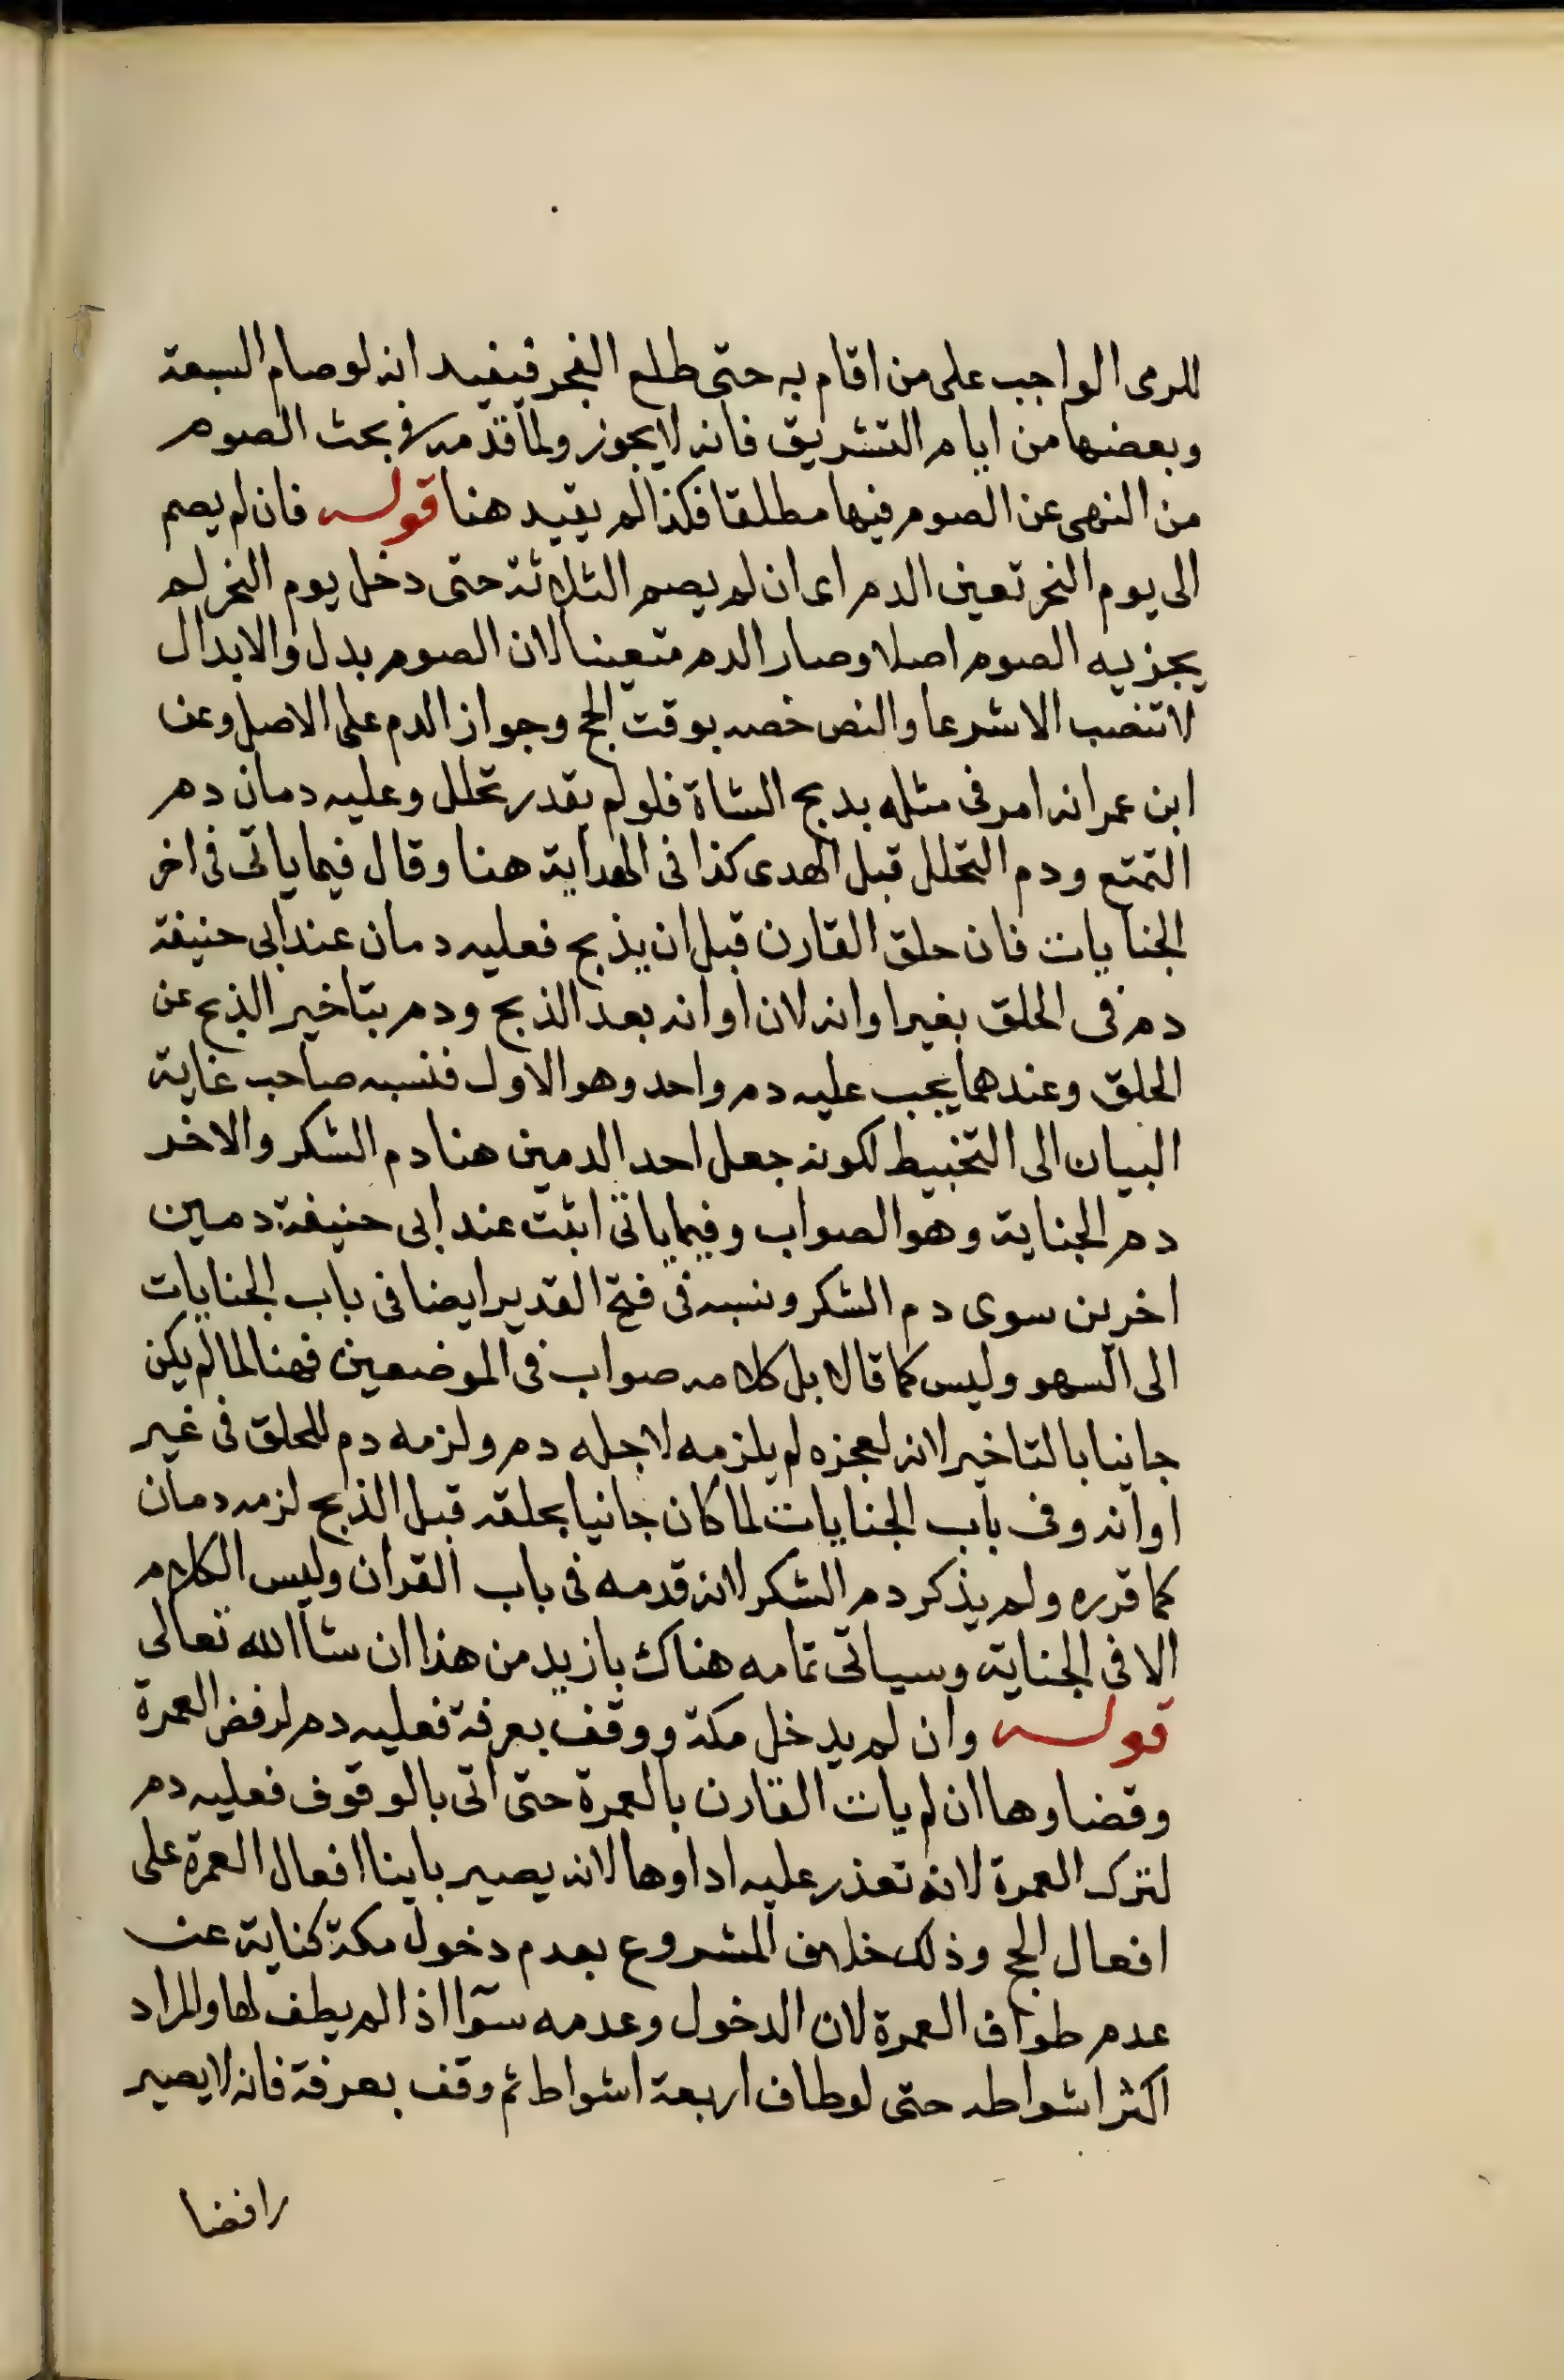 للرمى الواجب على من اقام به حتى طلع الفجر فيفيد انه لو صام السبعة
وبعضها من ايام التشريق فانه لا يجوز ولما قدمه فى بحث الصوم
من النهى عن الصوم فيها مطلقا فلذا لم يقيد هنا قوله فان لم يصم
الى يوم النحر تعين الدم اى ان لم يصم الثلاثة حتى دخل يوم النحر لم
يجزيه الصوم اصلا وصار الدم متعينا لان الصوم بدل والابدال
لا تنصب الا شرعا والنص خصه بوقت الحج وجواز الدم على الاصل وعن
ابن عمر انه امر فى مثله بدبح الشاة فلو لم يقدر تحلل وعليه دمان دم
التمتع ودم التحلل قبل الهدى كذا فى الهداية هنا وقال فيما ياتى فى اخر
الجنايات فان حلق القارن قبل ان يذبح فعليه دمان عند ابى حنيفة
دم فى الحلق بغير اوانه لان اوانه بعد الذبح ودم بتاخير الذبح عن
الحلق وعندهما يجب عليه دم واحد وهو الاول فنسبه صاحب غاية
البيان الى التخبيط لكونه جعل احد الدمين هنا دم الشكر والاخر
دم الجناية وهو الصواب وفيما ياتى اثبت عند ابى حنيفة دمين
اخرين سوى دم الشكر ونسبه فى فتح القدير ايضا فى باب الجنايات
الى السهو وليس كما قالا بل كلامه صواب فى الموضعين فهنا لما لم يكن
جانيا بالتاخير لانه لعجزه لم يلزمه لاجله دم ولزمه دم للحلق فى غير
اوانه وفى باب الجنايات لما كان جانيا بحلقه قبل الذبح لزمه دمان
كما قرره ولم يذكر دم الشكر لانه قدمه فى باب القران وليس الكلام
الا فى الجناية وسياتى تمامه هناك بازيد من هذا ان شاالله تعالى
قوله وان لم يدخل مكة ووقف بعرفة فعليه دم لرفض العمرة
وقضاوها ان لم يات القارن بالعمرة حتى اتى بالوقوف فعليه دم
لترك العمرة لانه تعذر عليه اداوها لانه يصير باينا افعال العمرة على
افعال الحج وذلك خلاف المشروع بعدم دخول مكة كناية عن
عدم طواف العمرة لان الدخول وعدمه سوآ اذا لم يطف لها والمراد
اكثر اشواطه حتى لو طاف اربعة اشواط ثم وقف بعرفة فانه لا يصير
رافضا